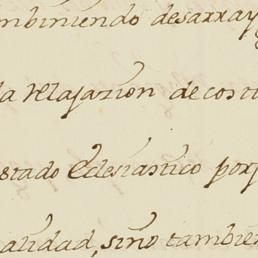 mbiniendo desarray
la relajazion de costu
estado Eclesiastico porq
alidad, sino tambien